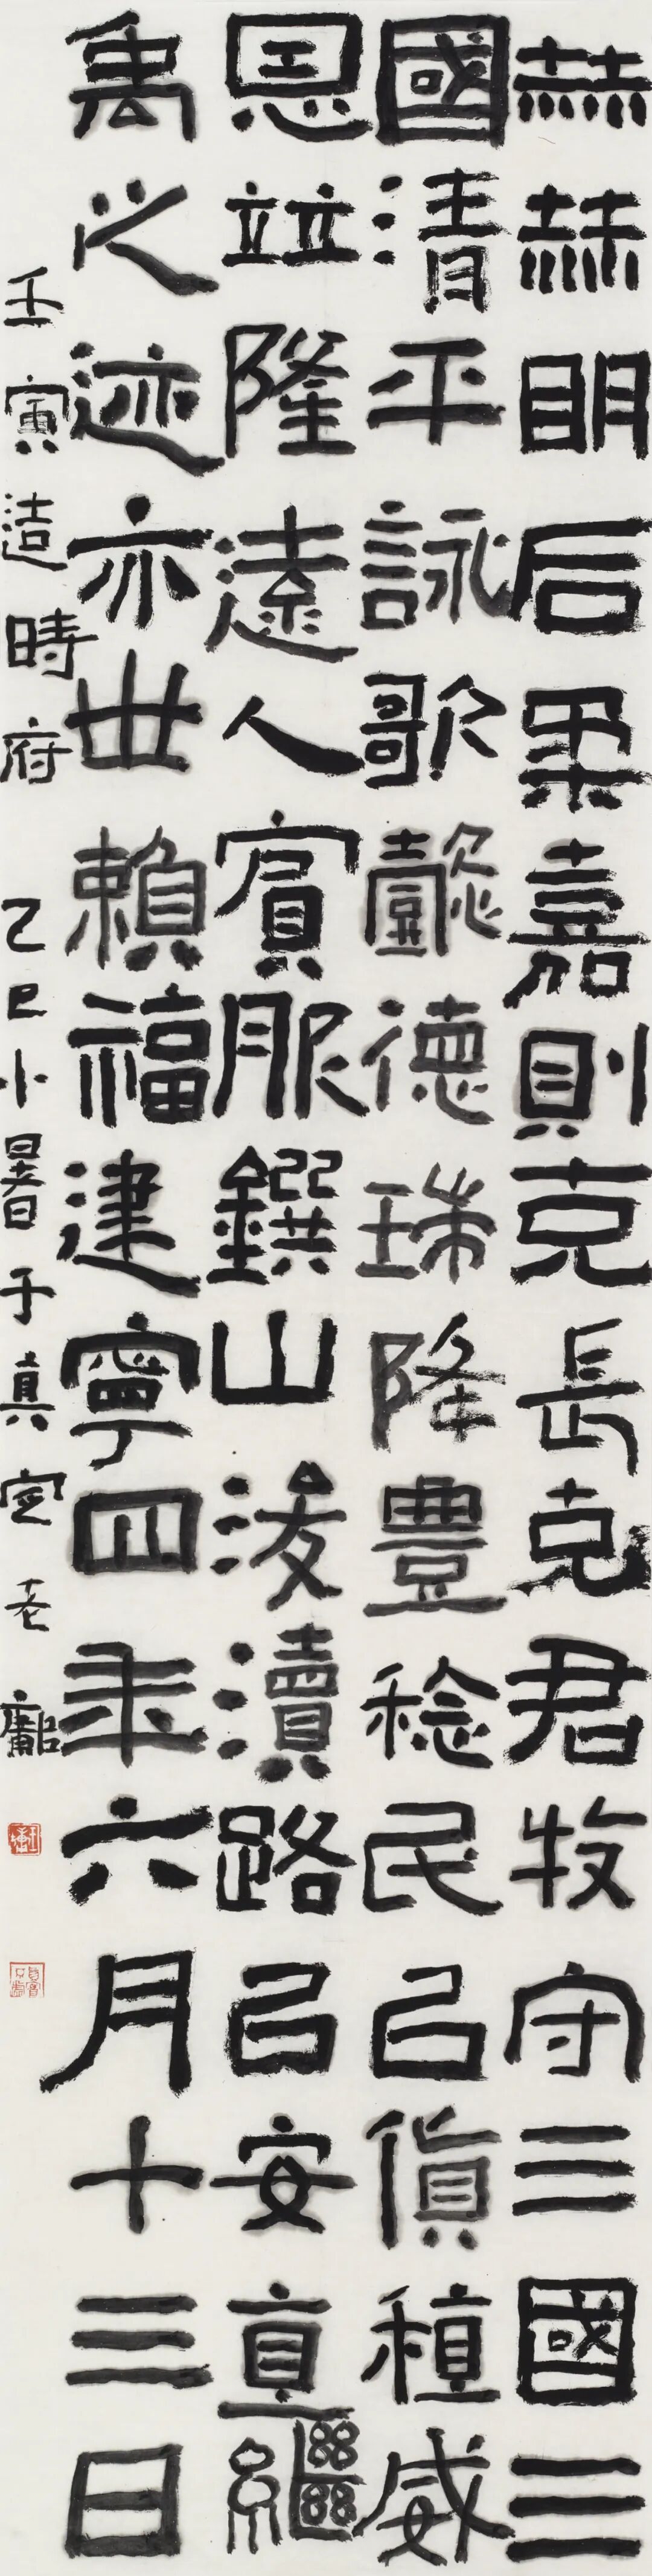 赫赫明后柔嘉則克長克君牧守三國三
國清平詠歌懿德瑞降豊稔民㠯貨稙威
恩竝隆遠人賓服鐉山浚瀆路㠯安直繼
禹之迹亦世賴福建寧四年六月十三日
壬寅造時府 乙巳小暑于真定老